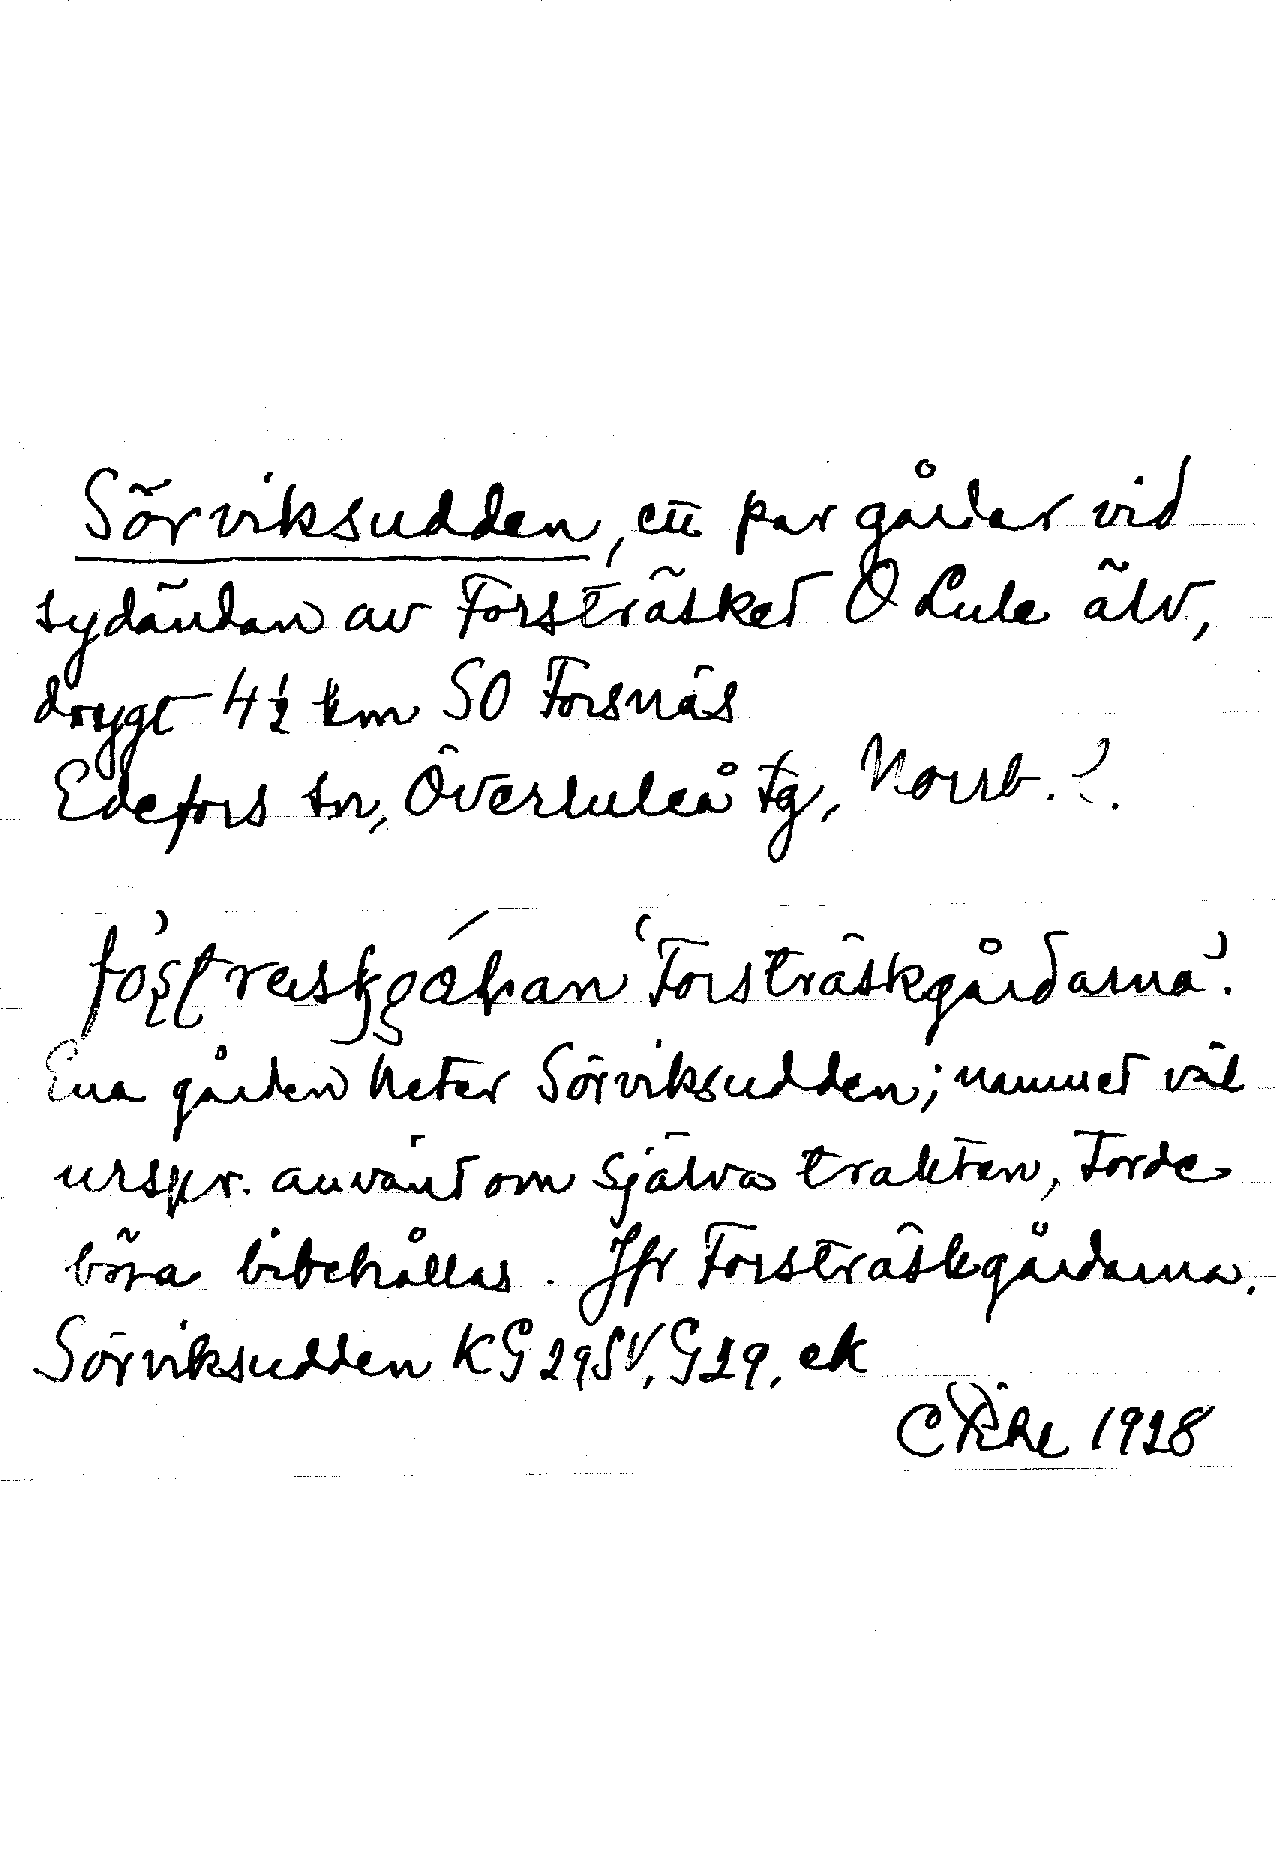 Sörviksudden, ett par gårdar vid
sydändan av Forsträsket Ö Lule älv,
drygt 4½ km SO Forsnäs
Edefors sn, Överluleå tg, Norrb. l.
'Forsträskgårdarna'.
Ena gården heter Sörviksudden; namnet väl
urspr. använt om själva trakten, torde
böra bibehållas. Jfr Forsträskgårdarna.
Sörviksudden KG 29 SV, G 29, ek
1928